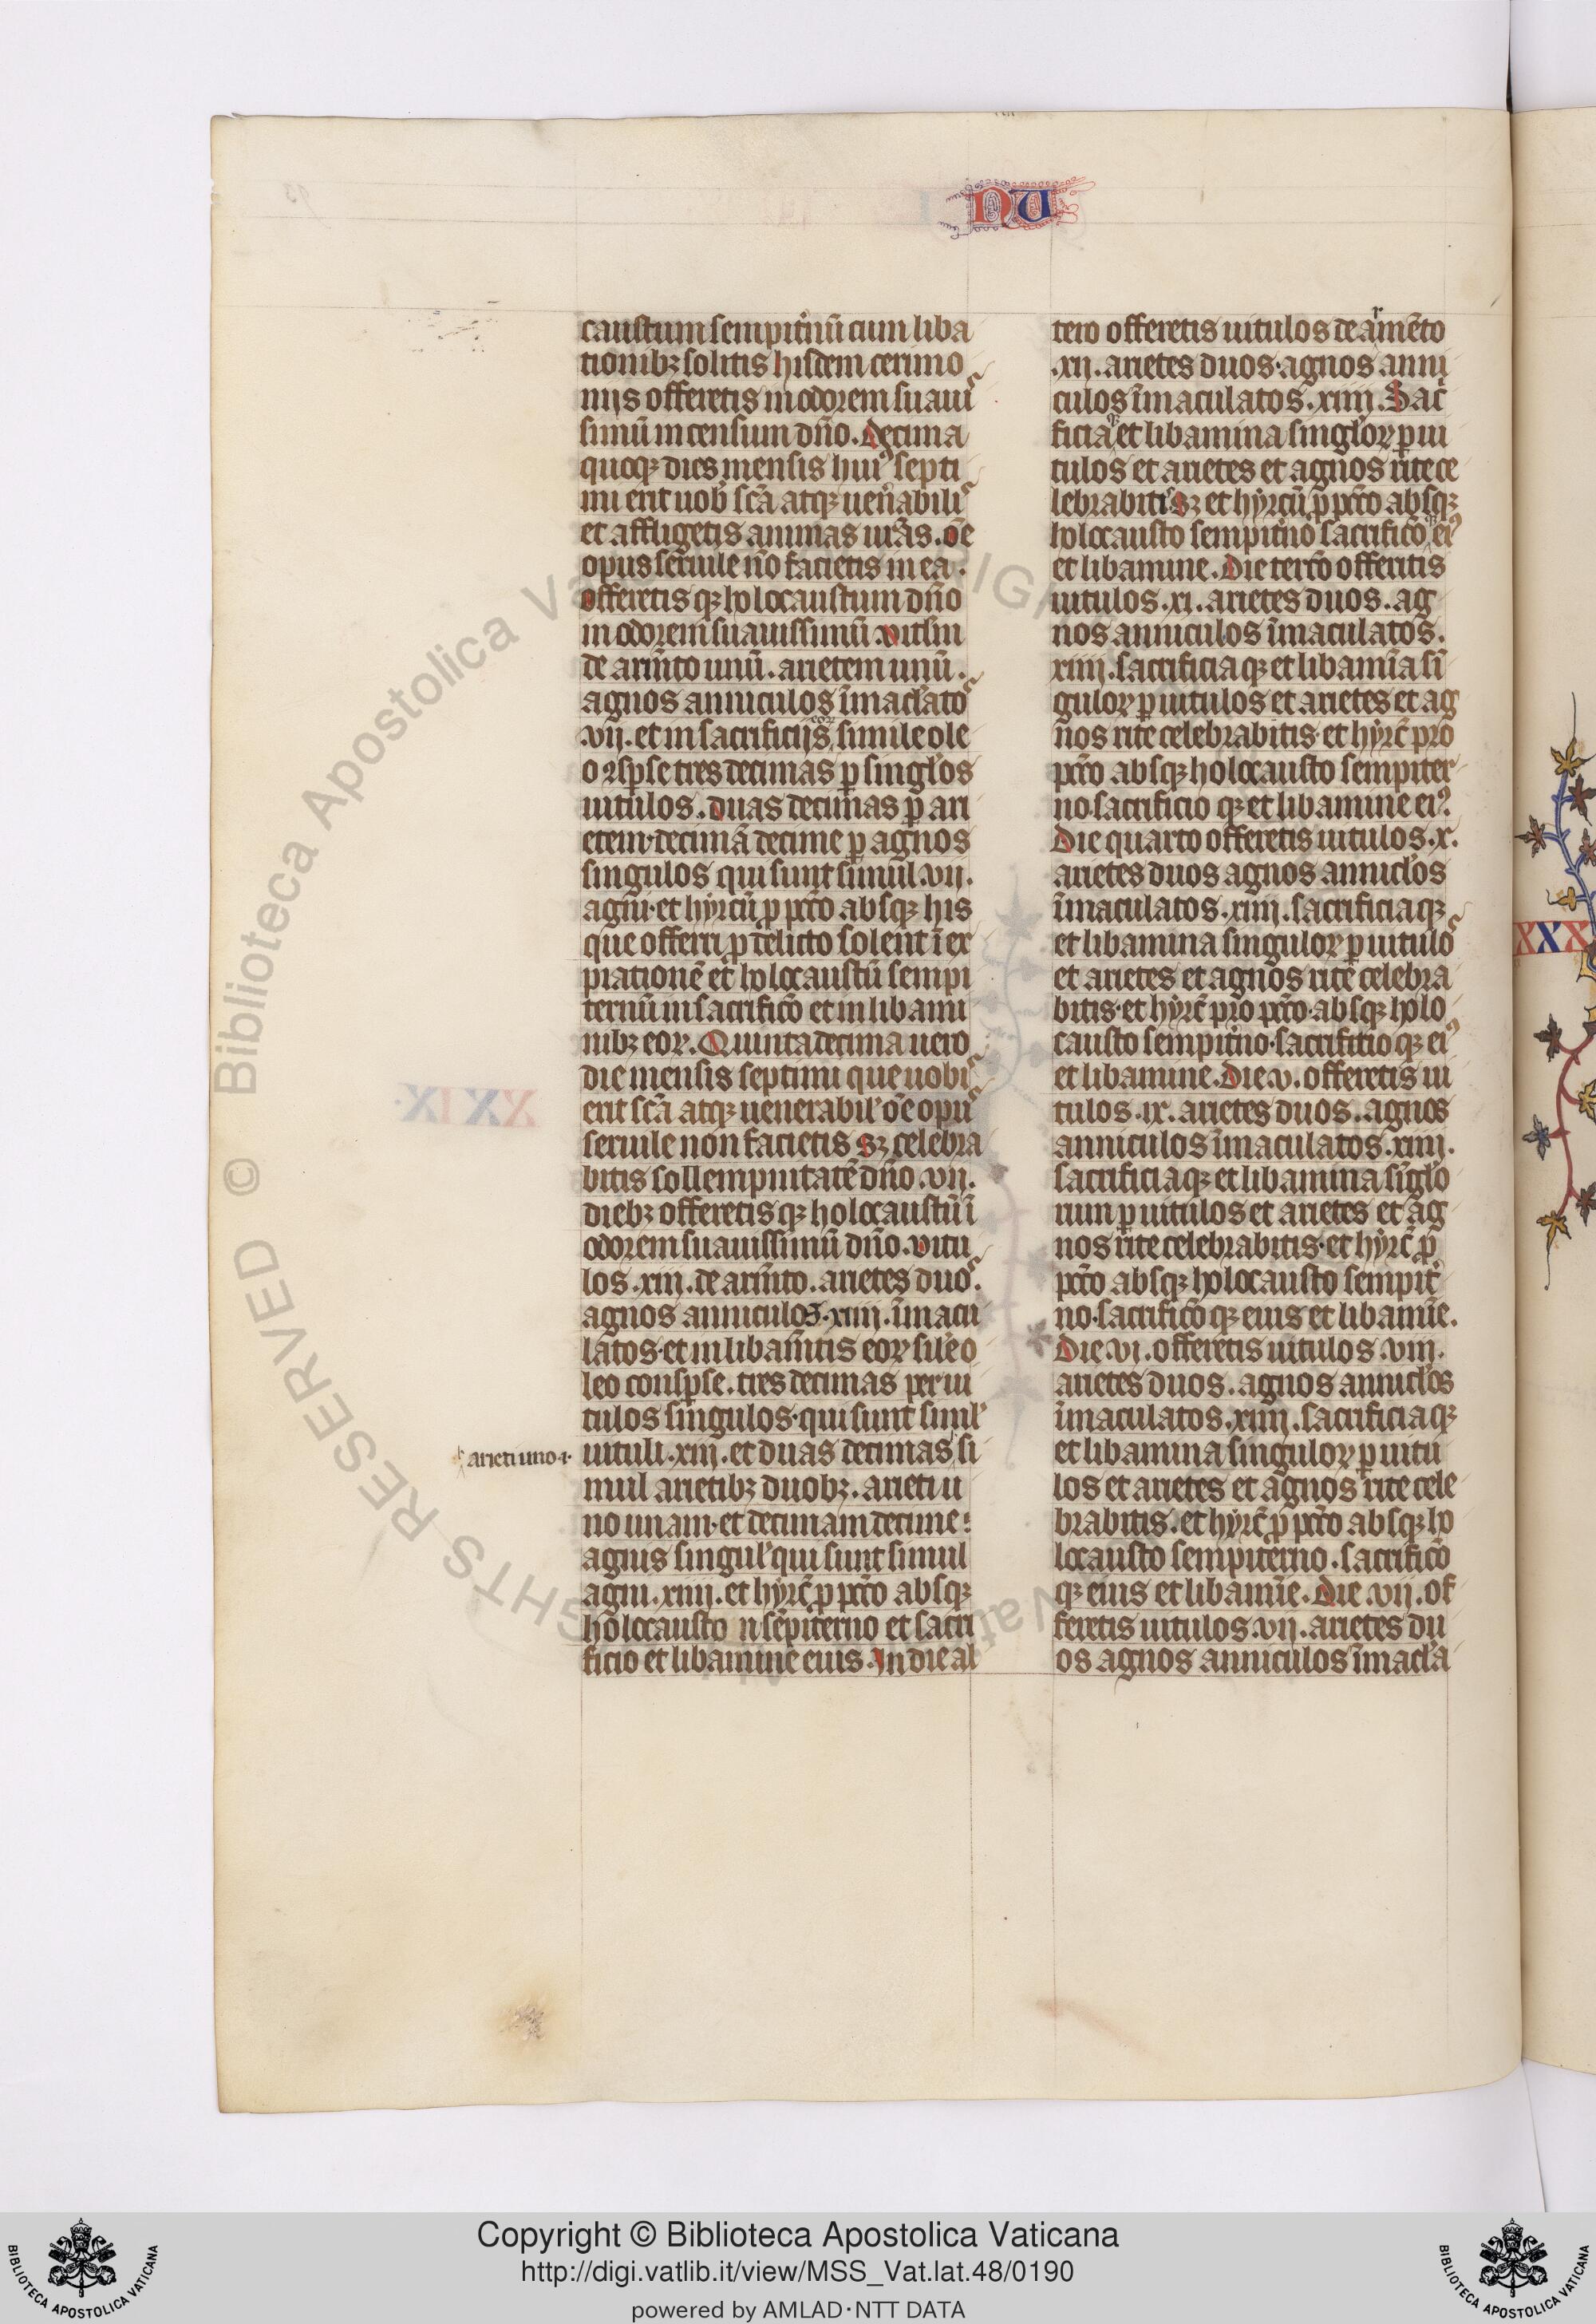 NU
caustum sempit͛nū cum liba
tionibꝫ solitis hisdem cerimo
nijs offeretis in odorem suauiſ
simū incensum dn̄o. Decima
quoqꝫ dies mensis huiꝰ septi
mi erit uob̕ sc̄a atqꝫ uen͛abiliſ
et affligetis animas ur̄as. oē
opus seruile nō facietis in ea.
offeretis qꝫ holocaustum dn̄o
in odorem suauissimū. vitl̕m
de arm̄to unū. arietem unū.
agnos anniculos īmacl̕atoſ
.vij. et in sacrificijs eoꝝ simile ole
o ꝯsꝑse tres decimas p̱ singl̕os
uitulos. duas decimas p̱ ari
etem. decimā decime p̱ agnos
singulos qui sunt simul .vij.
agni. et hyrcū p̱ pcc̄o absqꝫ his
que offerri p̱ delicto solent ī ex
piationē et holocaustū sempi
ternū in sacrific̄o et in libami
nibꝫ eoꝝ. Quintadecima uero
die mensis septimi que uobiſ
erit sc̄a atqꝫ uenerabil̕ oē opuſ
seruile non facietis sꝫ celebra
bitis sollempnitatē dn̄o .vij.
diebꝫ offeretisqꝫ holocaustū ī
odorem suauissimū dn̄o. vitu
los .xiij. de arm̄to. arietes duoſ.
agnos anniculos .xiiij. īmacu
latos. et in libam̄tis eoꝝ sil̕e o
leo consꝑse. tres decimas per ui
tulos singulos. qui sunt simul̕
uituli .xiij. et duas decimas si
arieti uno .i.
mul arietibꝫ duobꝫ. arieti u
no unam. et decimam decime
agnis singul̕ qui sunt simul
agni .xiiij. et hyrc̄ p̱ pcc̄o absqꝫ
holocausto sēpiterno et sacri
ficio et libamine eius. In die al
tero offeretis uitulos de armēto
.xij. arietes duos. agnos anni
culos īmaculatos .xiiij. Sac̕
ficia qꝫ et libamina singl̕oꝝ p̱ ui
tulos et arietes et agnos rite ce
lebrabitis sꝫ et hyrcū p̱ pcc̄o absqꝫ
holocausto sempit͛no sacrific̄o qꝫ eiꝰ
et libamine. Die terc̄o offeritis
uitulos .xi. arietes duos. ag
nos anniculos īmaculatos.
xiiij. sacrificia qꝫ et libamīa sī
guloꝝ p̱ uitulos et arietes et ag
nos rite celebrabitis. et hyrc̄ pro
pcc̄o absqꝫ holocausto sempiter
no. sacrificio qꝫ et libamine eiꝰ.
Die quarto offeretis uitulos .x.
arietes duos agnos annicl̕os
īmaculatos .xiiij. sacrificia qꝫ
et libamina singuloꝝ p̱ uituloſ
et arietes et agnos rite celebra
bitis. et hyrc̄ pro pcc̄o. absqꝫ holo
causto sempit͛no. sacrificio qꝫ eiꝰ
et libamine. Die .v. offeretis ui
tulos .ix. arietes duos. agnos
anniculos īmaculatos .xiiij.
sacrificiaqꝫ et libamina sīgl̕o
rum p̱ uitulos et arietes et ag
nos rite celebrabitis. et hyrc̄ p̱
pcc̄o absqꝫ holocausto sempit͛
no. sacrific̄o qꝫ eius et libamīe.
Die .vi. offeretis uitulos .viij.
arietes duos. agnos annicl̕os
īmaculatos .xiiij. sacrificia qꝫ
et libamina singuloꝝ p̱ uitu
los et arietes et agnos rite cele
brabitis. et hyrc̄ p̱ pcc̄o absqꝫ ho
locausto sempiterno. sacrific̄o
qꝫ eius et libamīe. Die .vij. of
feretis uitulos .vij. arietes du
os agnos anniculos īmacl̕a
XXX
© Biblioteca Apostolica Vaticana
RIGHTS RESERVED
Copyright © Biblioteca Apostolica Vaticana
http://digi.vatlib.it/view/MSS_Vat.lat.48/0190
powered by AMLAD·NTT DATA
BIBLIOTECA APOSTOLICA VATICANA
BIBLIOTECA APOSTOLICA VATICANA